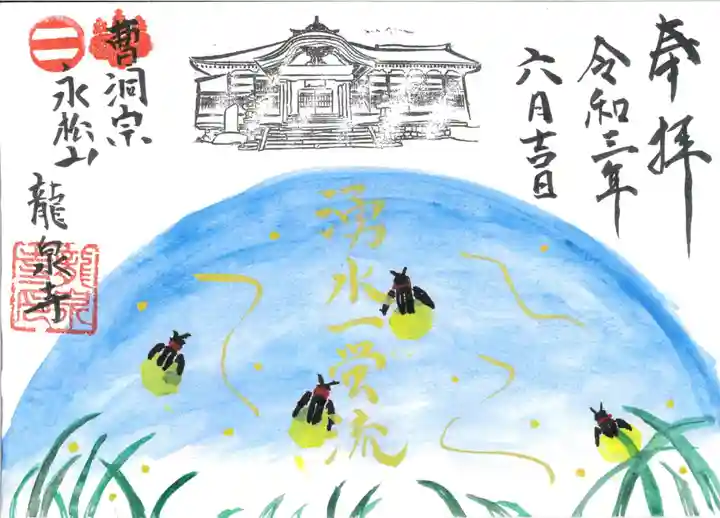 奉拝
令和三年
六月吉日
湧水一蛍流
曹洞宗
永松山
龍泉寺